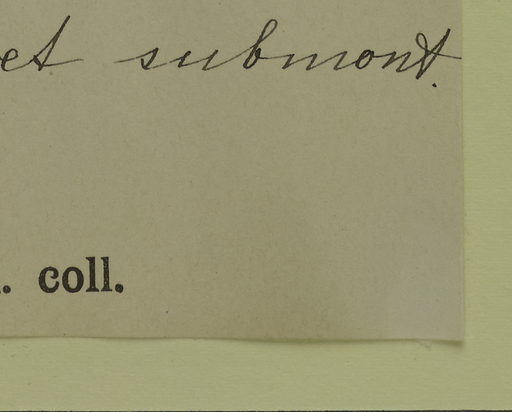 et submont.
. coll.